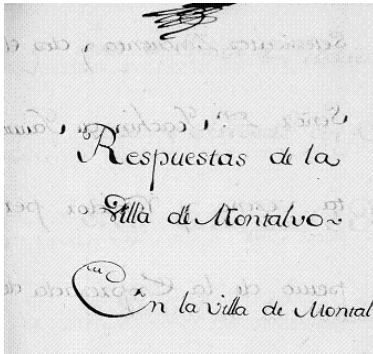 Respuestas de la
Villa de Montalvo~
En la villa de Montal